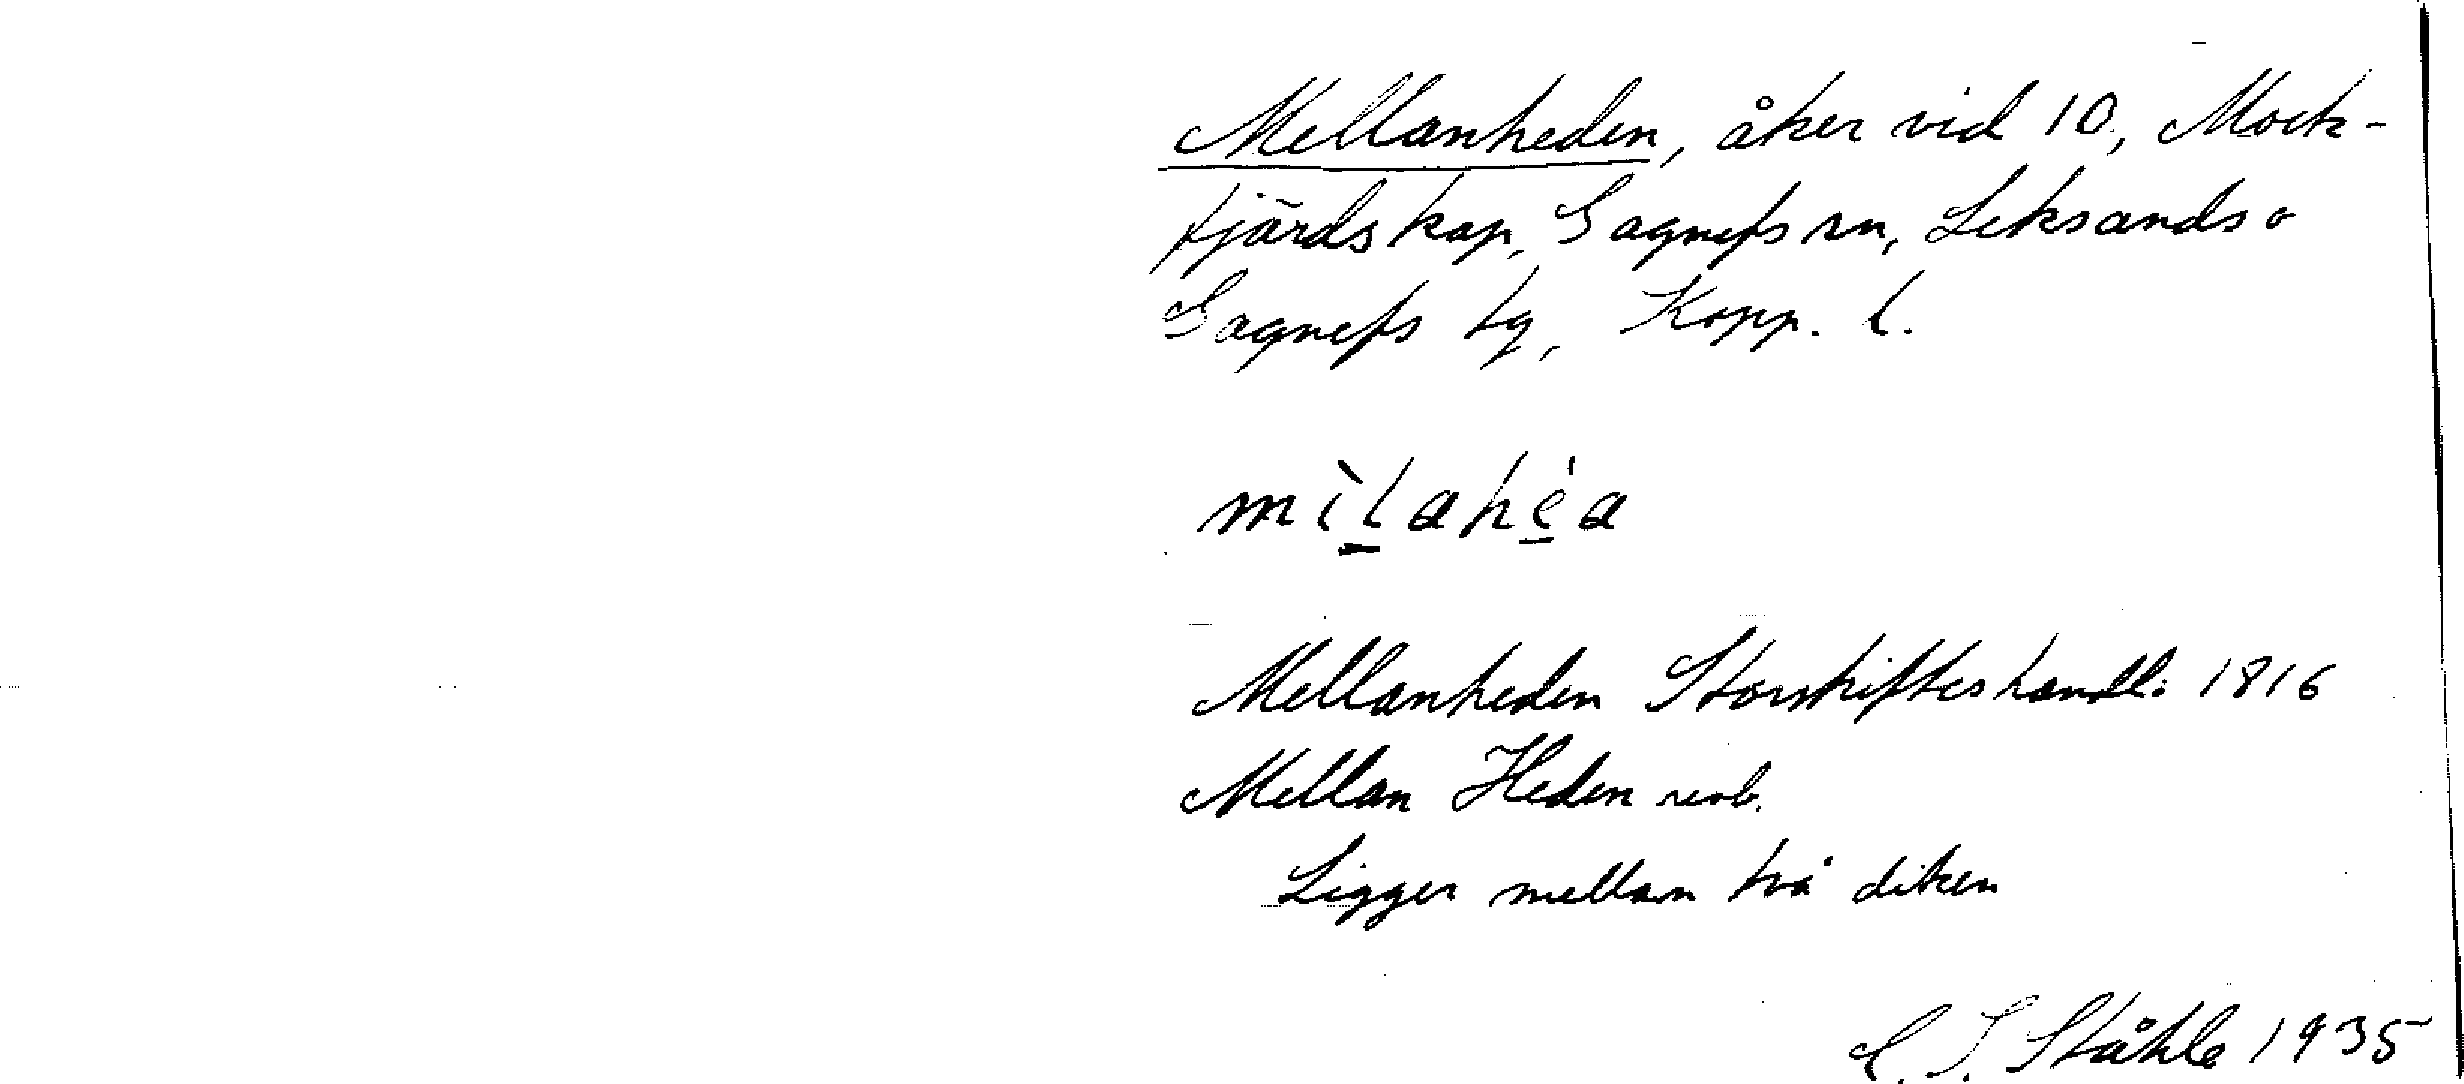 Mellanheden, åker vid 10, Mock-
fjärds kap, Gagnefs sn, Leksands o
Gagnefs tg, Kopp. l.
mìlahéa
Mellanheden Storskifteshandl. 1816
Mellan Heden
Ligger mellan två diken
C. I. Ståhle 1935